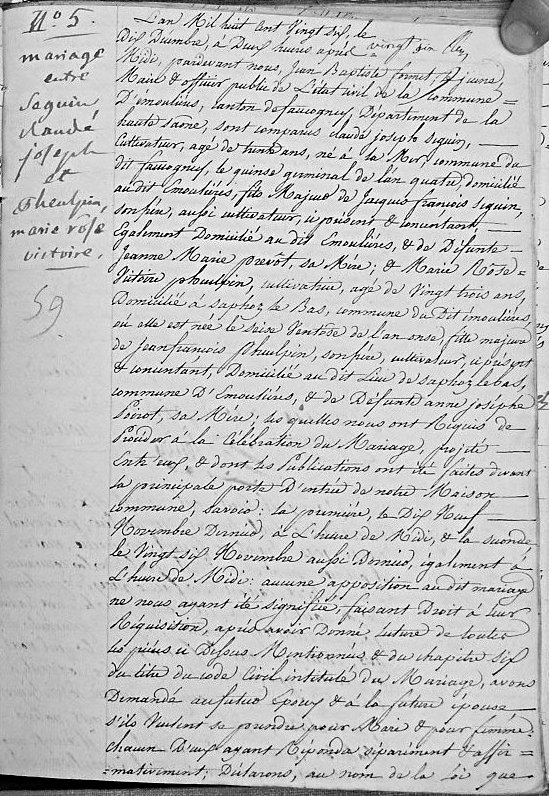 N° 5.
mariage
entre
Seguin
Claude
joseph
et
Pheulpin,
marie rose
victoire.
59
L'an Mil huit cent Vingt six, le
dix Décembre, à Deux heures après
Midi, pardevant nous, Jean Baptiste
Maire & officier public de L'état civil de la Commune
D'Emoulières, canton de faucogney, Département de la
haute Saône, sont comparus claude joseph seguin,
Cultivateur, agé de trente ans, né à la Mer, commune du
dit faucogney, le quinze germinal de l'an quatre, domicilié
au dit Emoulières, fils Majeur de Jacques françois seguin,
son père, aussi cultivateur, ci présent & consentant,
Egalement Domicilié au dit Emoulières, & de Défunte
Jeanne Marie prevôt, sa Mère; & Marie Rose
Victoire pheulpin, cultivatrice, agé de Vingt trois ans,
Domicilié à saphoz le Bas, commune du Dit émoulières
où elle est née le seize Ventose de l'an onze, fille majeure
de Jean francois Pheulpin, son père, cultivateur, ci présent
& consentant, Domicilié au dit Lieu de saphoz le bas,
commune D'Emoulières, & de Défunte anne josephe
Poirot, sa Mère; les quelles nous ont Requis de
Procéder à la Célébration du Mariage, projeté
Entre eux & dont les Publications ont été faites devant
la principale porte D'entrée de notre Maison
commune, savoir: la première, le Dix Neuf
Novembre Dernier, à L'heure de Midi, & la seconde
le Vingt six Novembre aussi Dernier, également à
L'heure de Midi: aucune opposition au dit mariage
ne nous ayant été signifiée, faisant Droit à leur
Réquisition, après avoir Donné lecture de toutes
les pièces ci Dessus Mentionnées & du chapitre six
du titre du code Civil intitulé du Mariage, avons
Demandé au futur Epoux & à la future épouse
s'ils Veulent se prendre pour Mari & pour femme:
chacun D'eux ayant Répondu séparément & affir=
=mativement: Déclarons, au nom de la Loi que